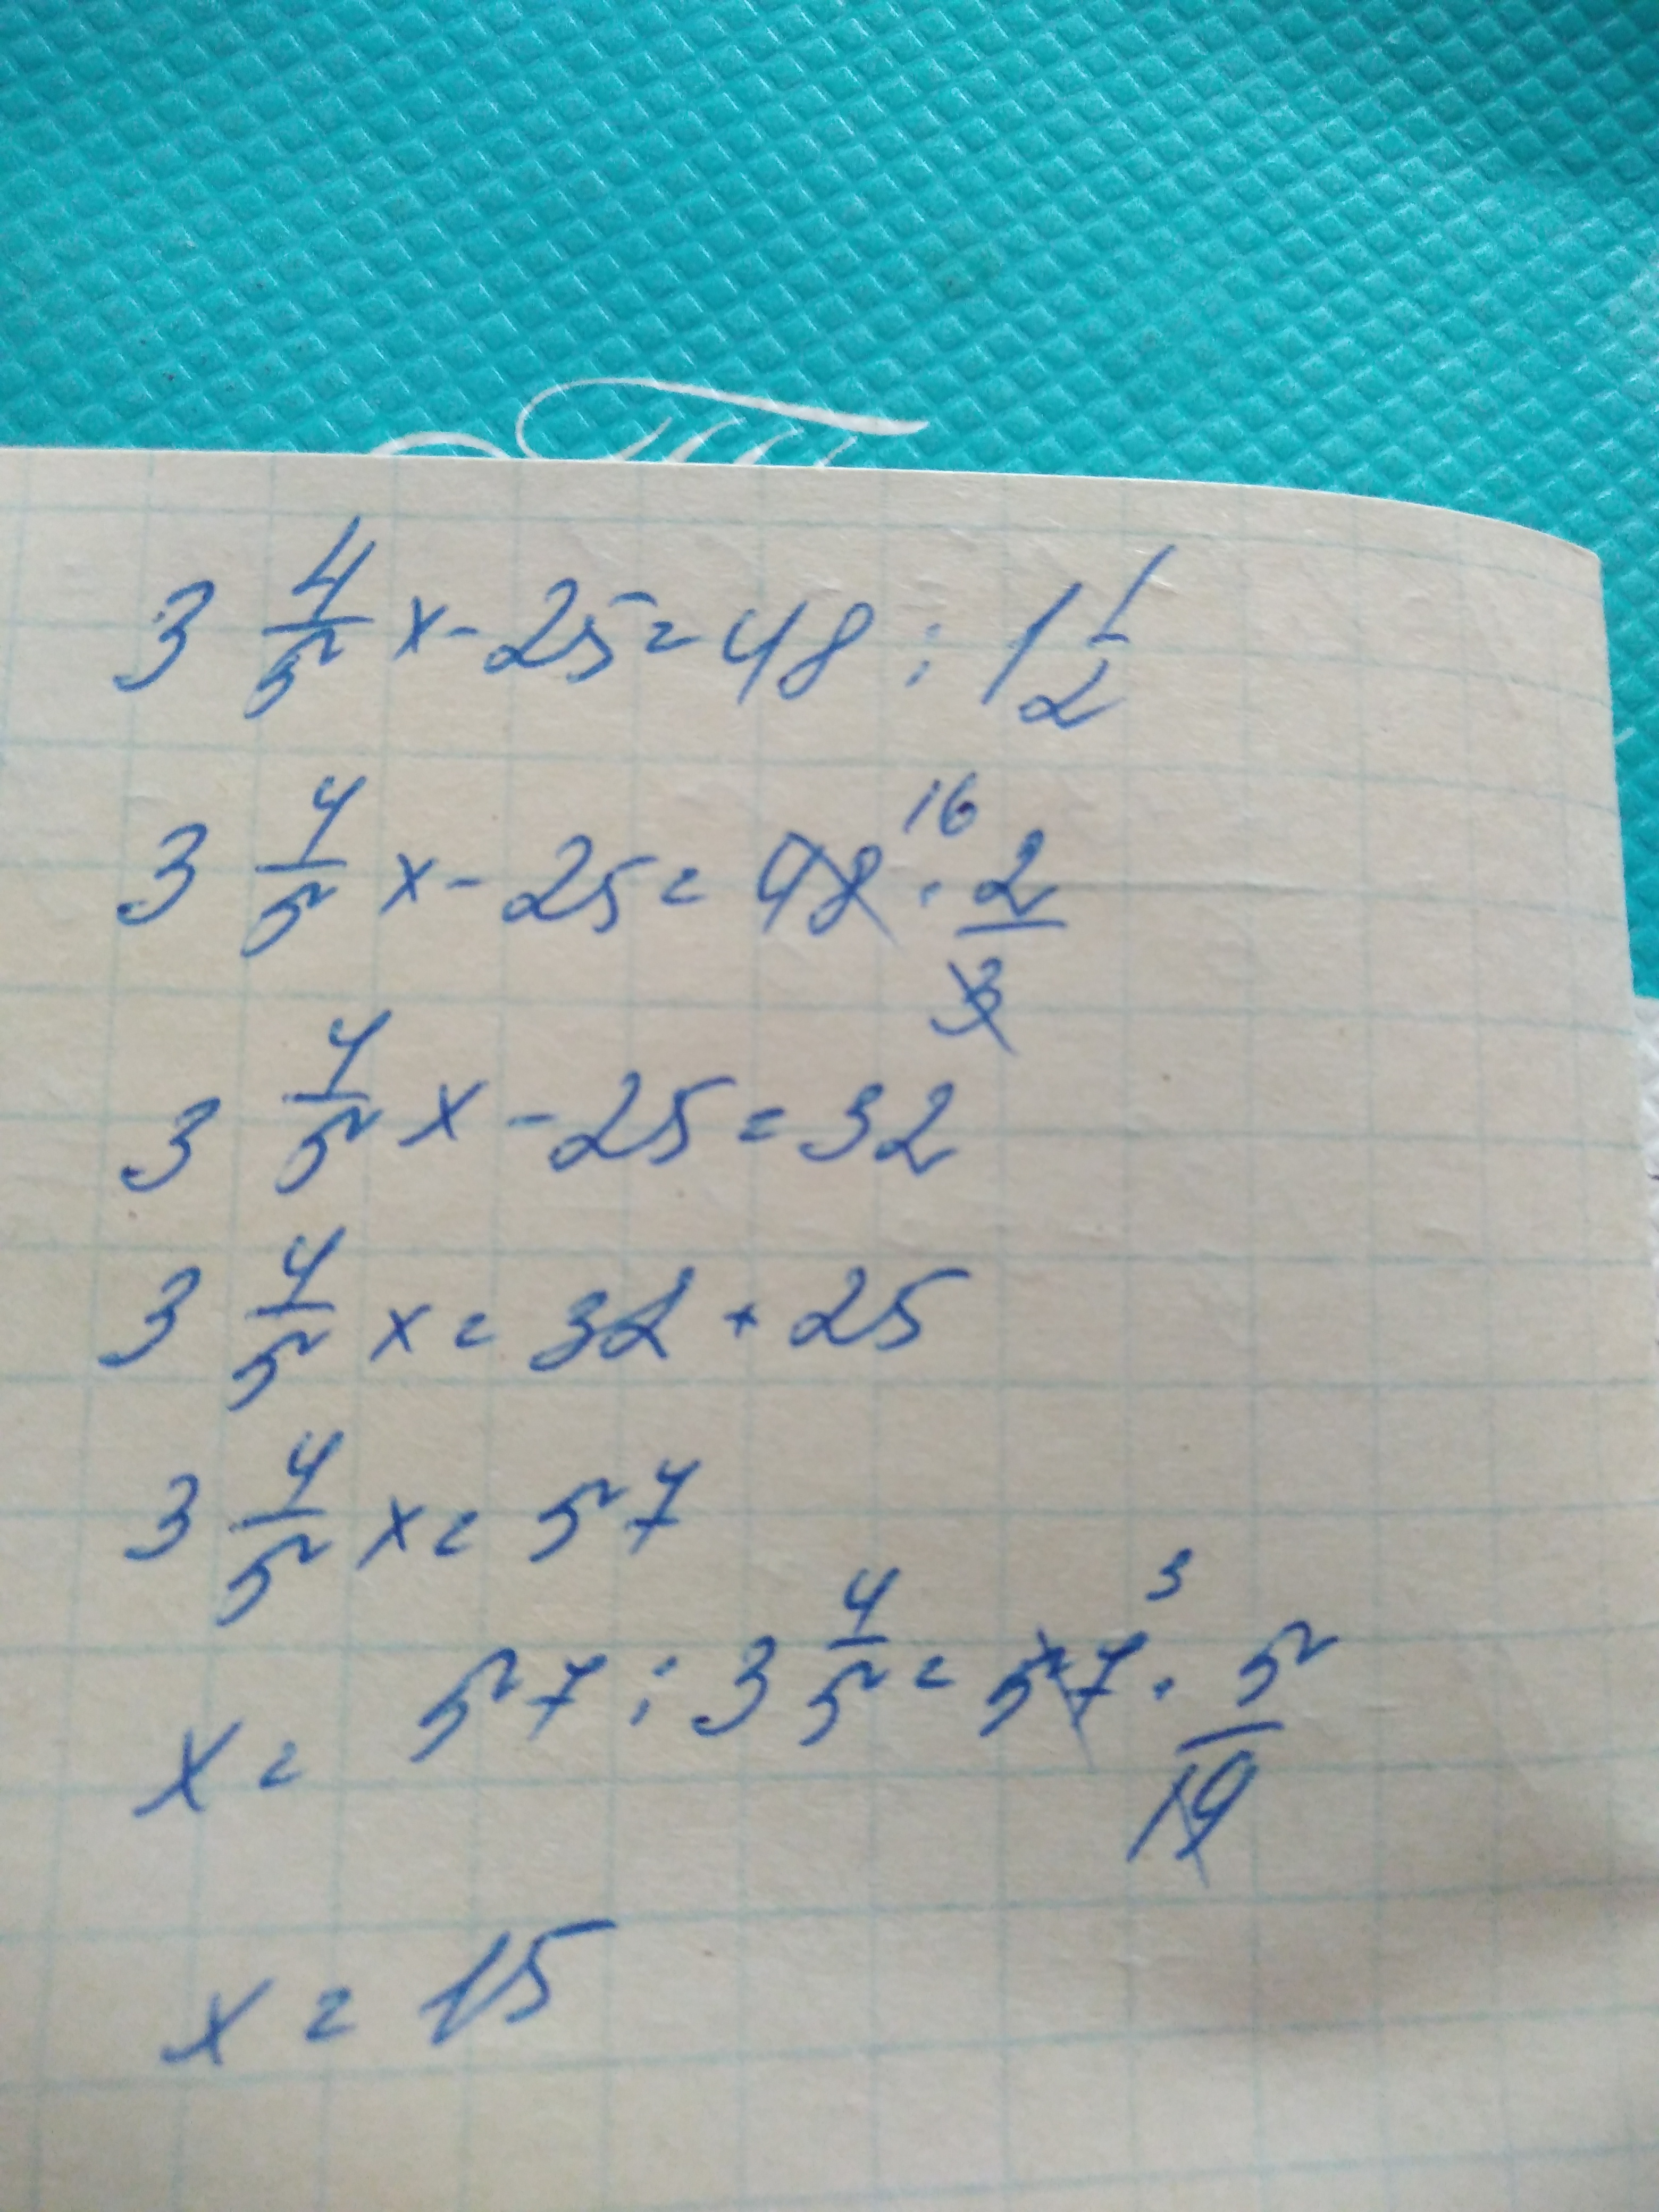 3 4/5 x - 25 = 48 : 1 1/2
3 4/5 x - 25 = 48 16 · 2/3
3 4/5 x - 25 = 32
3 4/5 x = 32 + 25
3 4/5 x = 57
x = 57 : 3 4/5 = 57 3 · 5/19
x = 15